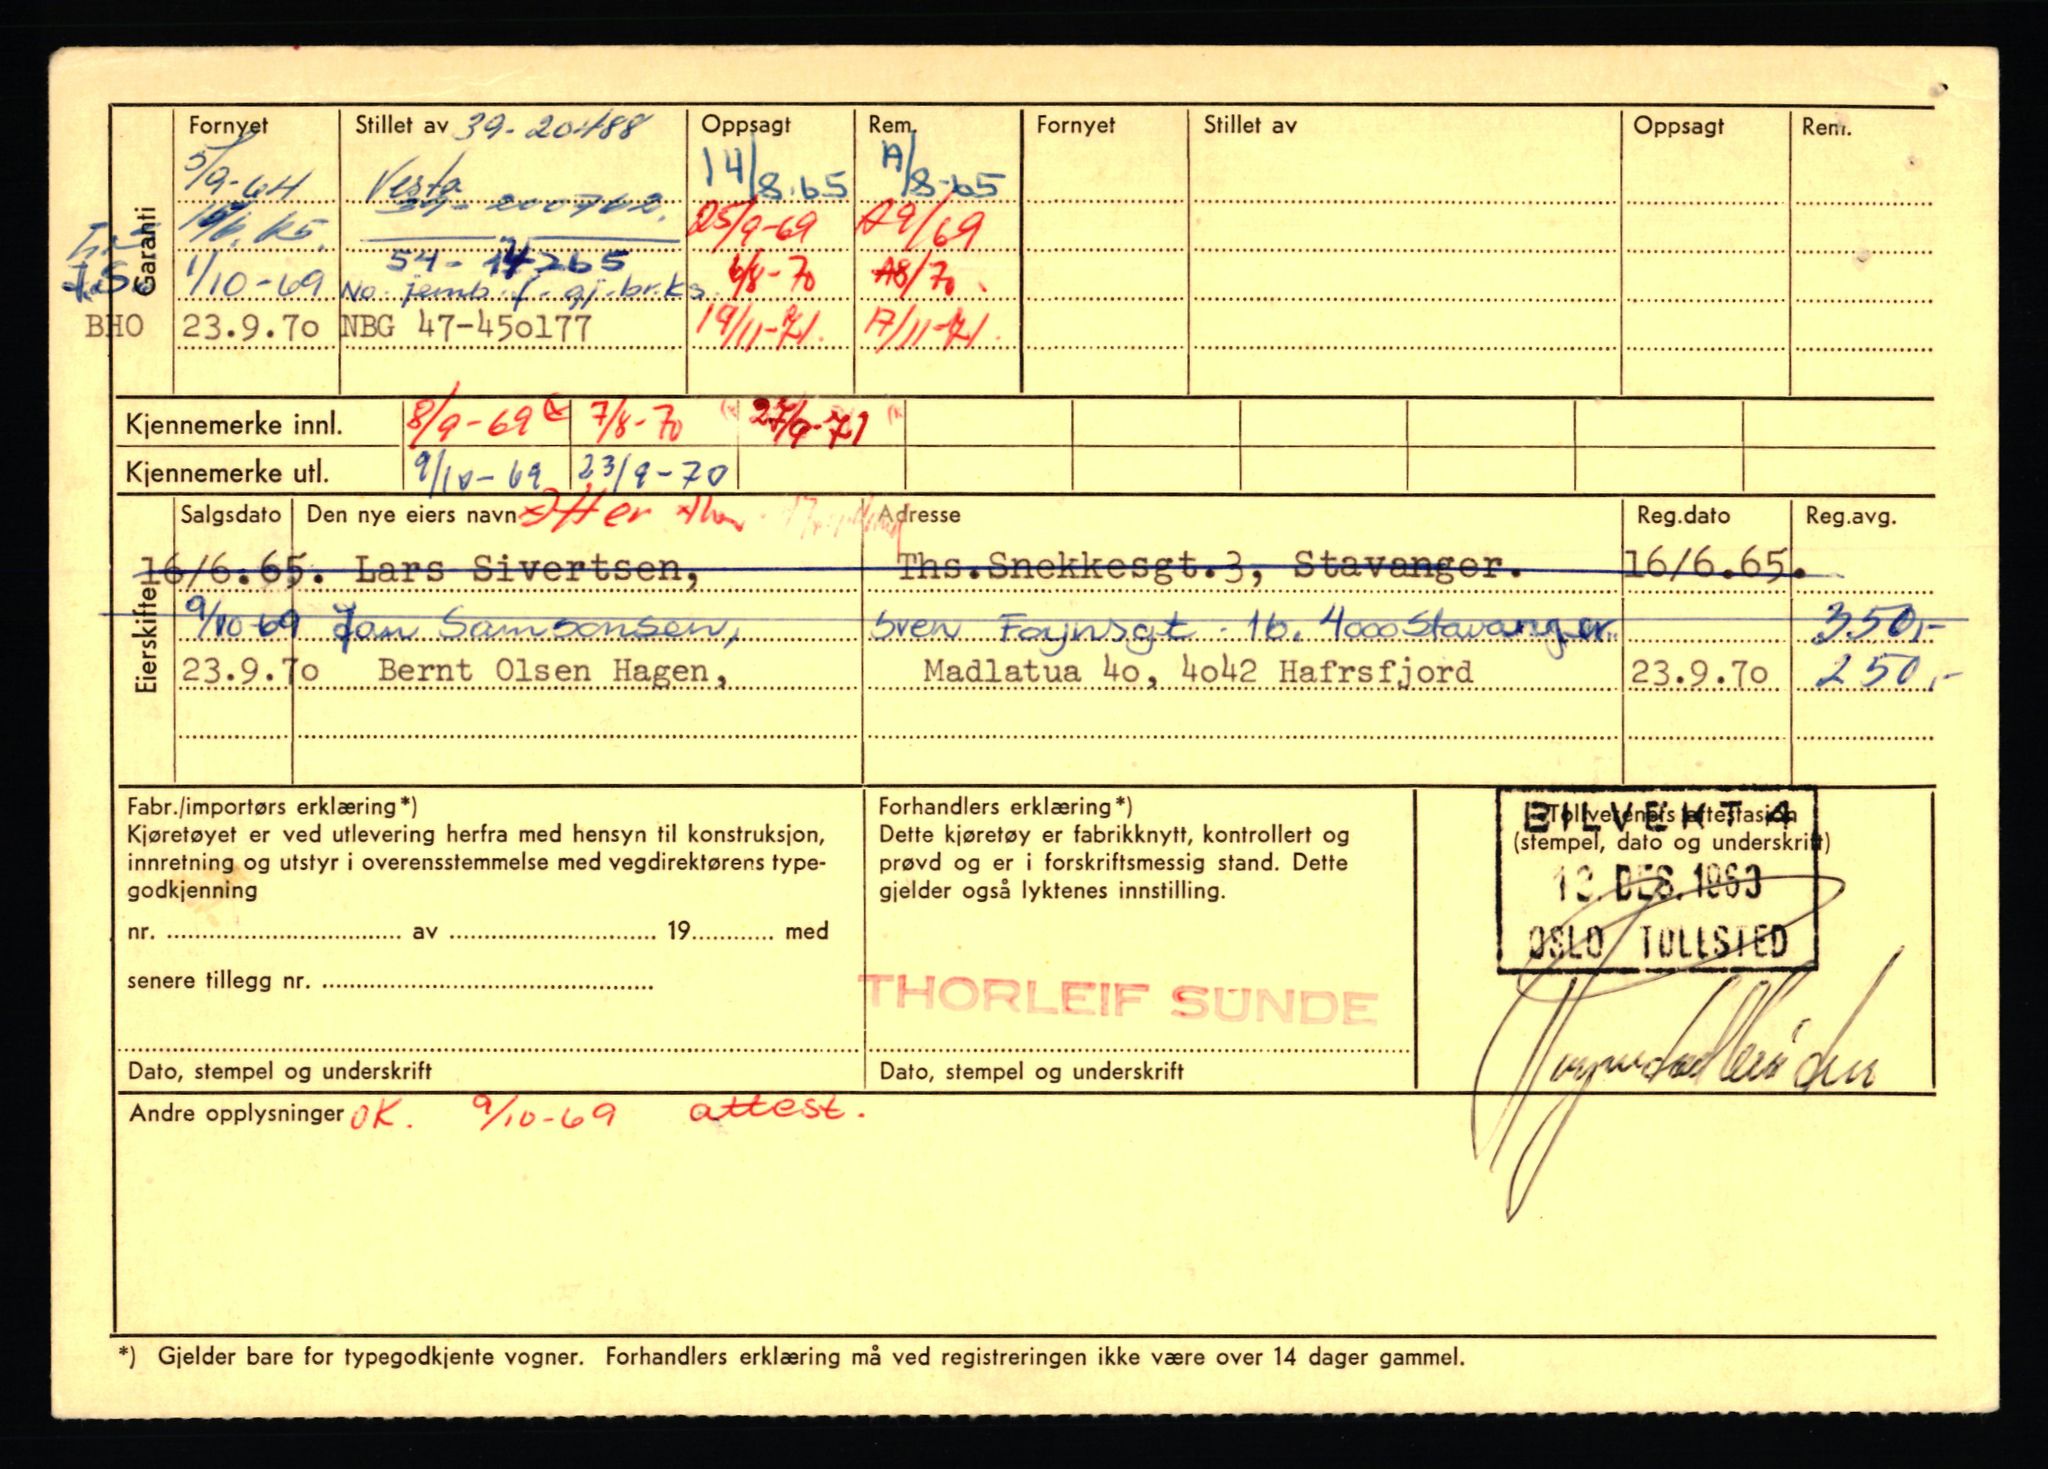 Fornyet Stillet av 39-20488 Oppsagt Rem. Fornyet Stillet av Oppsagt Rem.
5/9-64 Vesta 14/8.65 A/8-65
39-200762. 25/9-69 A9/69
54-14265
1/10-69 No. jernb. f. gj. br. ks. 6/8-70 A8/70.
BHO 23.9.70 NBG 47-450177 19/11-71. A/11-71.
Garanti
Kjennemerke innl. 8/9-69 7/8-70 27/9-71
Kjennemerke utl. 9/10-69 23/9-70
Salgsdato Den nye eiers navn Adresse Reg.dato Reg.avg.
16/6.65. Lars Sivertsen, Ths.Snekkesgt.3, Stavanger. 16/6.65.
9/10-69 Jan Samsonsen, Sven Foynsgt. 16. 4000 Stavanger. 350,-
23.9.70 Bernt Olsen Hagen, Madlatua 40, 4042 Hafrsfjord 23.9.70 250,-
Eierskifte
Fabr./importørs erklæring*)
Kjøretøyet er ved utlevering herfra med hensyn til konstruksjon,
innretning og utstyr i overensstemmelse med vegdirektørens type-
godkjenning
nr. av 19 med
senere tillegg nr.
Dato, stempel og underskrift
Forhandlers erklæring*)
Dette kjøretøy er fabrikknytt, kontrollert og
prøvd og er i forskriftsmessig stand. Dette
gjelder også lyktenes innstilling.
THORLEIF SUNDE
Dato, stempel og underskrift
Tollvesenets attestasjon
(stempel, dato og underskrift)
BILVEKT 4
DES. 1963
OSLO TOLLSTED
Andre opplysninger OK. 9/10-69 attest.
*) Gjelder bare for typegodkjente vogner. Forhandlers erklæring må ved registreringen ikke være over 14 dager gammel.